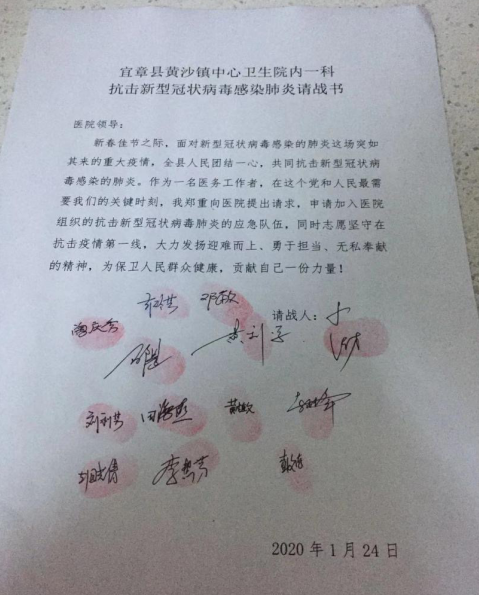 宜章县黄沙镇中心卫生院内一科
抗击新型冠状病毒感染肺炎请战书
医院领导：
新春佳节之际，面对新型冠状病毒感染的肺炎这场突如
其来的重大疫情，全县人民团结一心，共同抗击新型冠状病
毒感染的肺炎。作为一名医务工作者，在这个党和人民最需
要我们的关健时刻，我郑重向医院提出请求，申请加入医院
组织的抗击新型冠状病毒肺炎的应急队伍，同时志愿坚守在
抗击疫情第一线，大力发扬迎难而上、勇于担当、无私奉献
的精神，为保卫人民群众健康，贡献自己一份力量！
邓敏
请战人：
刘利芳
黄敏
2020 年 1 月 24 日